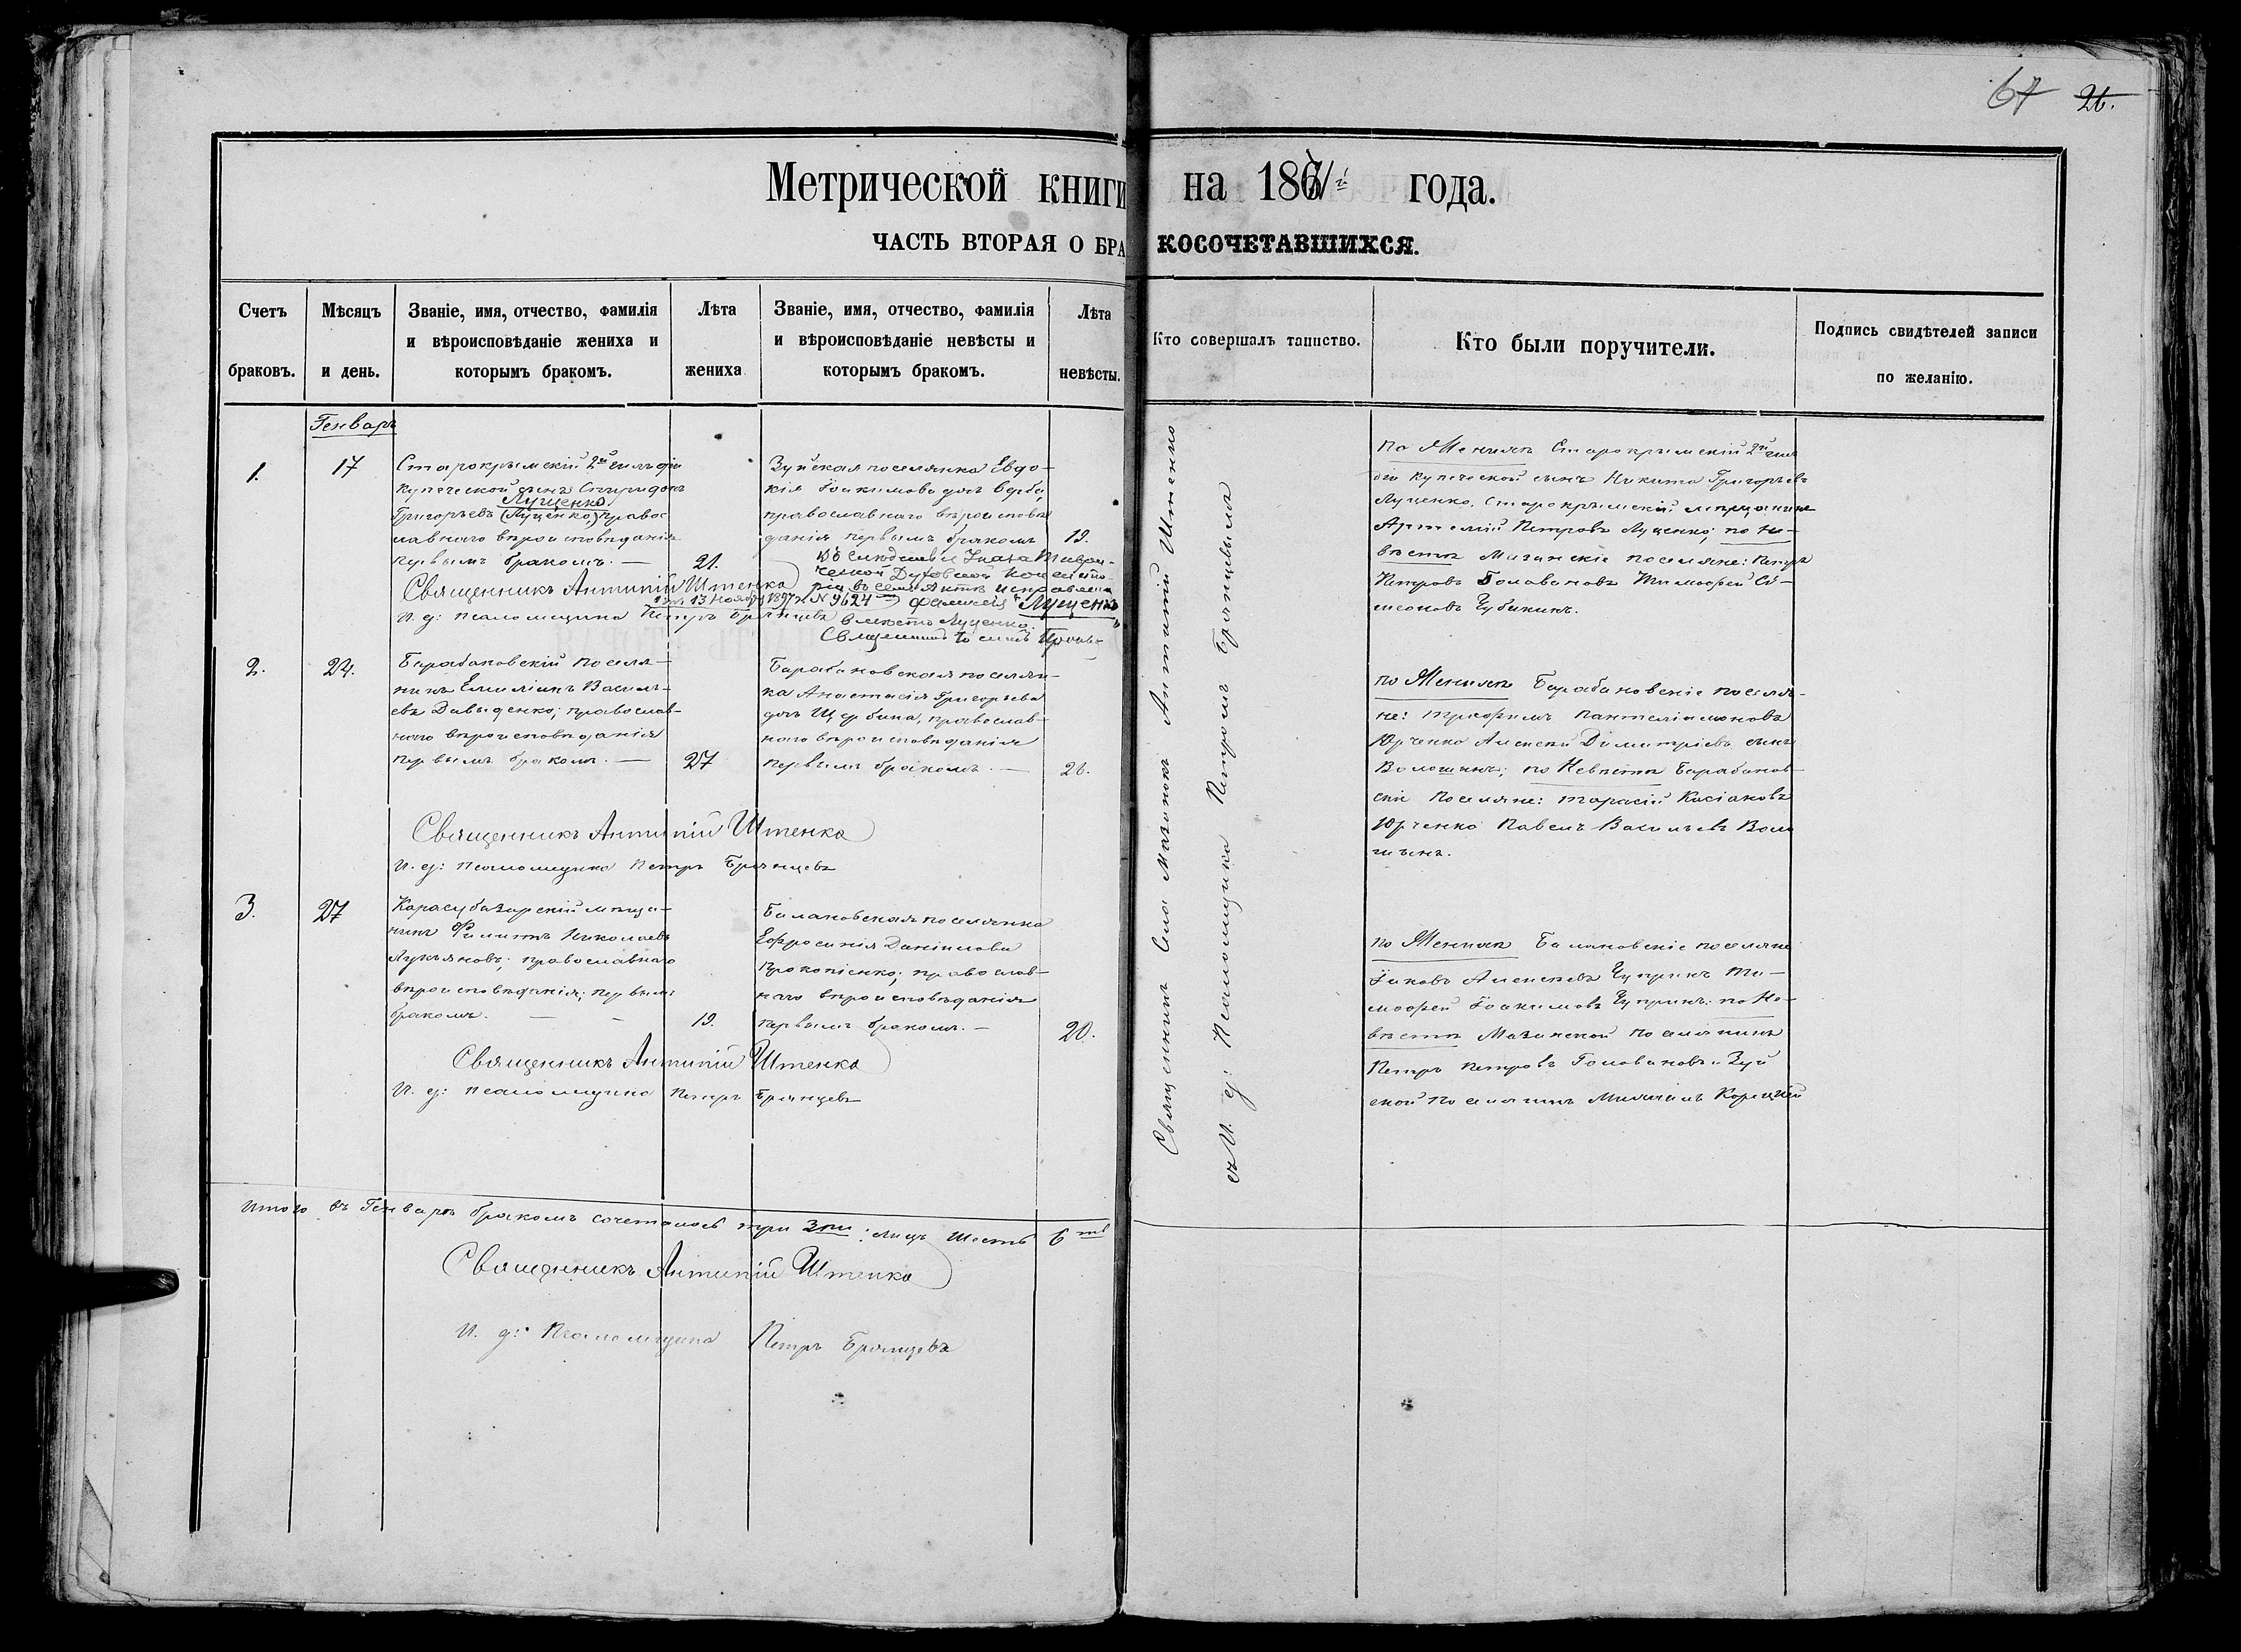 67 26.
Метрической книги на 1871й года.
ЧАСТЬ ВТОРАЯ О БРАКОСОЧЕТАВШИХСЯ.
Счетъ браковъ.
Мѣсяцъ и день.
Званіе, имя, отчество, фамилія и вѣроисповѣданіе жениха и которымъ бракомъ.
Лѣта жениха
Званіе, имя, отчество, фамилія и вѣроисповѣданіе невѣсты и которымъ бракомъ.
Лѣта невѣсты.
Кто совершалъ таинство.
Кто были поручители.
Подпись свидѣтелей записи по желанію.
Генварь
1.
17
Старокрымскій 2й гильдіи
купеческой сынъ Спиридонъ
Лущенко
Григорьевъ (Луценко,) правос
лавнаго вѣроисповѣданія
первымъ бракомъ. —
21.
Зуйская поселянка Евдо-
кія Іоакимова дочь Верба,
православнаго вѣроисповѣ
данія первымъ бракомъ
19.
Вслѣдствіе Указа Таври-
ческой Духовной Консисто-
ріи въ семъ Актѣ исправлена
отъ 13 Ноября 1897 г. № 9624 фамилія "Лущенко"
вмѣсто Луценко.
Священникъ
Священникъ Антипій Штенко
И. д: псаломщика Петръ Брянцевъ
по Женихѣ Старокрымскій 2й гиль
діи купеческой сынъ Никита Григорьевъ
Луценко, Старокрымскій мѣщанинъ
Артемій Петровъ Луценко; по Не-
вѣстѣ Мазанскіе поселяне: Петръ
Петровъ Головановъ Тимофей Си-
меоновъ Чубикинъ.
2.
24.
Барабановскій поселя-
нинъ Емиліанъ Василь-
евъ Давыденко; православ-
наго вѣроисповѣданія
первымъ бракомъ. —
27
Барабановская поселян-
ка Анастасія Григорьева
дочь Щербина, православ-
наго вѣроисповѣданія
первымъ бракомъ. —
26.
Священникъ Антипій Штенко
И. д: псаломщика Петръ Брянцевъ
по Женихѣ Барабановскіе поселя-
не: Трифонъ Пантелімоновъ
Юрченко Алексѣй Димитріевъ сынъ
Волошинъ; по Невѣстѣ Барабанов-
скіе поселяне: Тарасій Касіановъ
Юрченко Павелъ Васильевъ Воло
шинъ.
3.
27
Карасубазарскій мѣща-
нинъ Филипъ Николаевъ
Лукьяновъ; православнаго
вѣроисповѣданія; первымъ
бракомъ. — —
19.
Балановская поселянка
Ефросинія Даніилова
Прокопіенко; православ-
наго вѣроисповѣданія
первымъ бракомъ. —
20.
Священникъ Антипій Штенко
И. д: псаломщика Петръ Брянцевъ
по Женихѣ Балановскіе поселяне
Іаковъ Алексѣевъ Чупринъ Ти-
мофей Іоакимовъ Чупринъ: по Не-
вѣстѣ Мазанской поселянинъ
Петръ Петровъ Головановъ и Зуй
ской поселянинъ Корецкій
Священникъ села Мазанокъ Антипій Штенко
съ И. д: Псаломщика Петромъ Брянцевымъ
Итого въ Генварѣ бракомъ сочеталось три 3ри: лицъ шесть 6ть
Священникъ Антипій Штенко
И. д: Псаломщика Петръ Брянцевъ